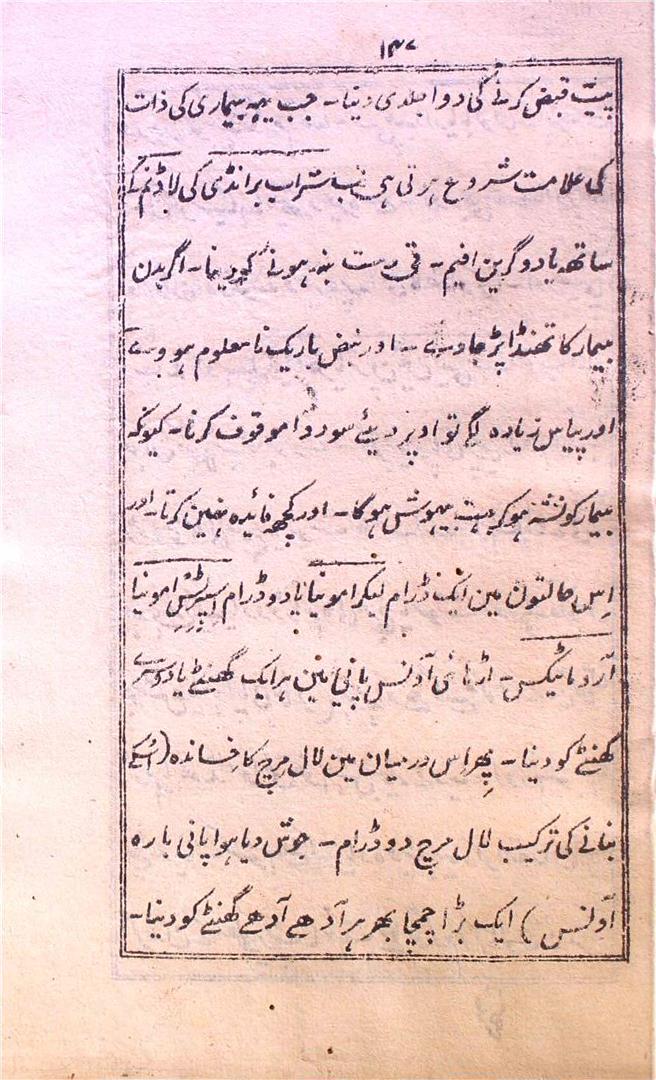 ۱۴۷
پیٹ قبض کرنے کی دوا جلدی دینا۔ جب یہہ بیماری کی ذات
کی علامت شروع ہوتی ہی تب شراب برانڈی کی لاڈنم کے
ساتھہ یا دو گرین افیم۔ قی دست بند ہونے کو دینا۔ اگر بدن
بیمار کا تھنڈا پڑ جاوے۔ اور نبض باریک نا معلوم ہووے
اور پیاس زیادہ لگے تو اوپر دیئے سو دوا موقوف کرنا۔ کیونکہ
بیمار کو نشہ ہوکر بہت بیہوش ہوگا۔ اور کچھ فائدہ نہین کرتا۔ اور
اِس حالتون مین ایک ڈرام لیکر امونیا یا دو ڈرام اسپرٹس امونیا
آرو ماٹیکس۔ اڑہائی آونس پانی مین ہر ایک گھنٹے یا دوسرے
گھنٹے کو دینا۔ پھر اِس درمیان مین لال مرچ کا خساندہ (اُسکے
بنانے کی ترکیب لال مرچ دو ڈرام۔ جوش دیا ہوا پانی بارہ
آونس) ایک بڑا چمچا بھر ہر آدھے آدھے گھنٹے کو دینا۔